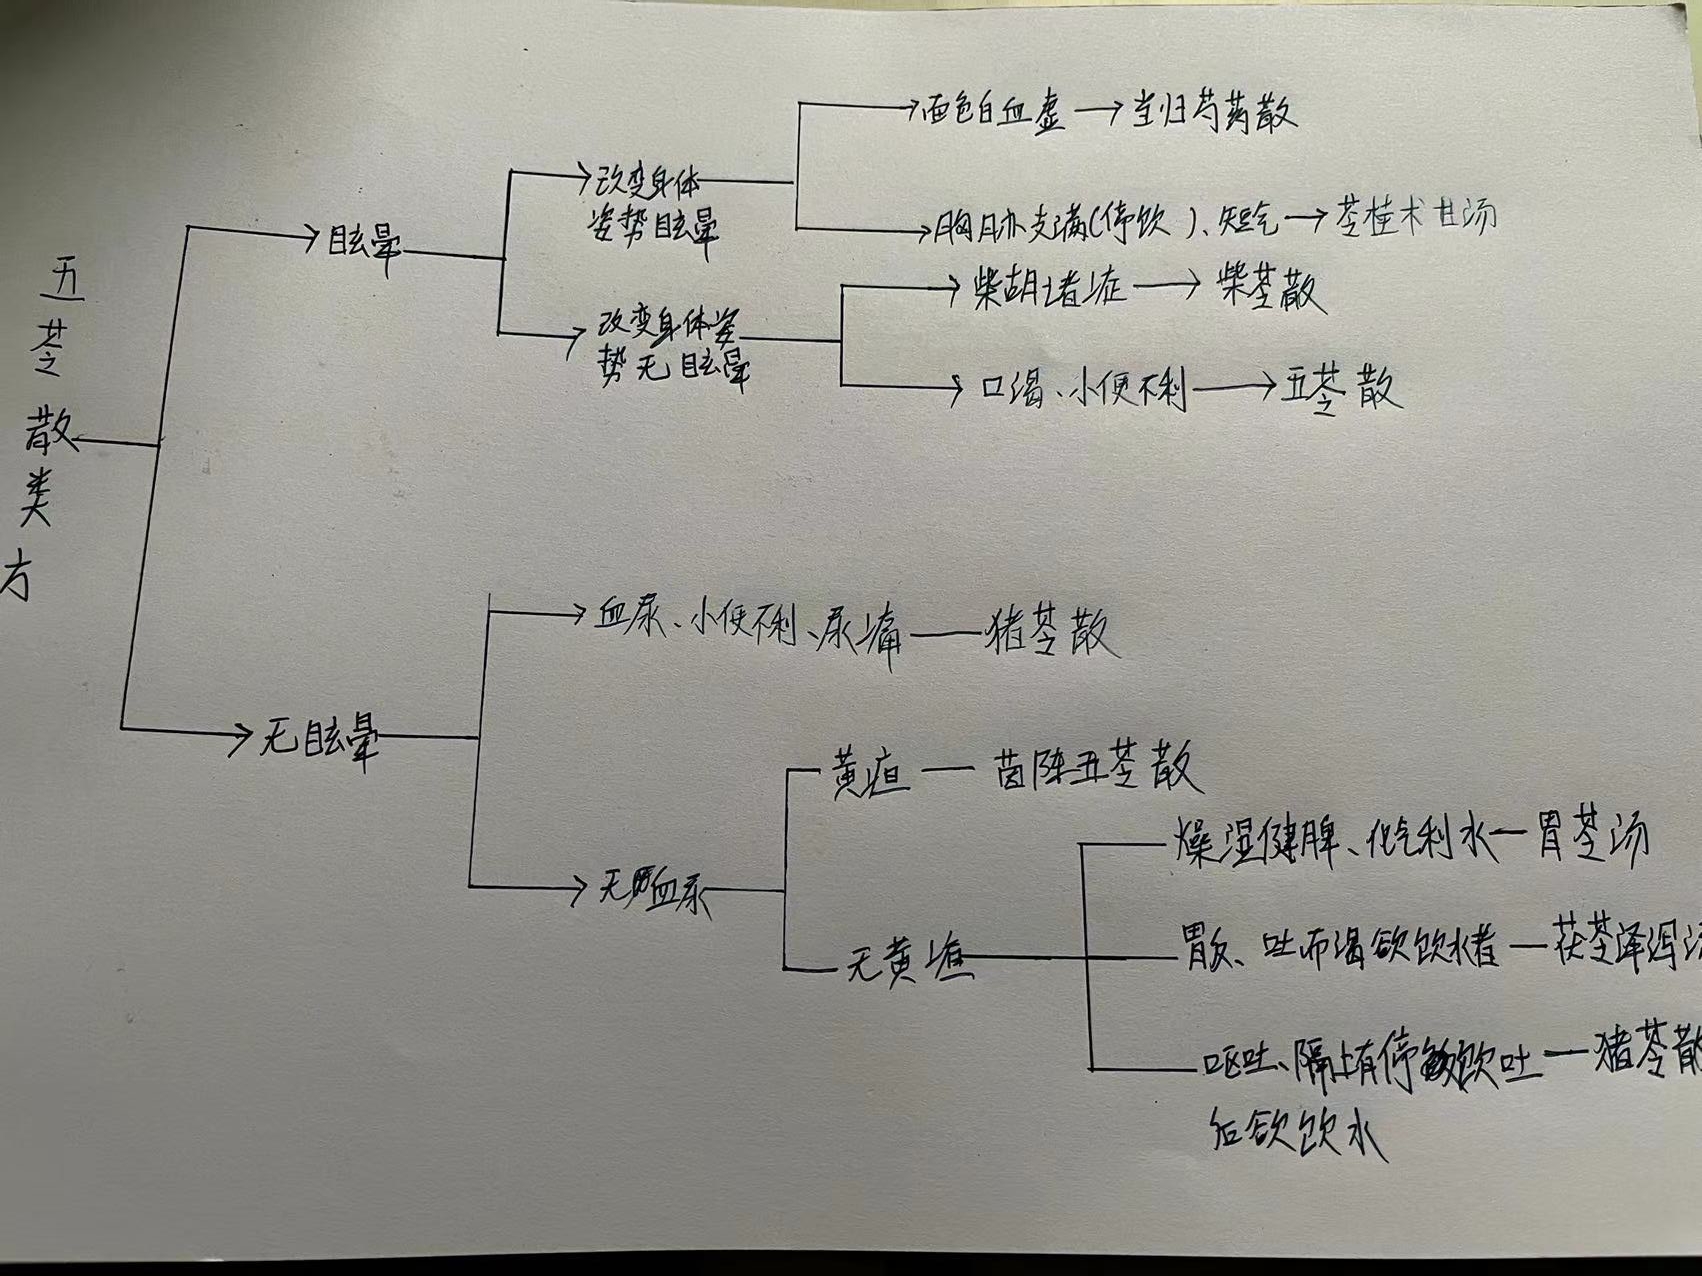 五苓散类方
眩晕
改变身体
姿势眩晕
面色白血虚→当归芍药散
胸胁支满(停饮)、短气→苓桂术甘汤
改变身体姿
势无眩晕
柴胡诸症→柴苓散
口渴、小便不利→五苓散
无眩晕
血尿、小便不利、尿痛—猪苓散
无血尿
黄疸—茵陈五苓散
无黄疸
燥湿健脾、化气利水—胃苓汤
胃反、吐而渴欲饮水者—茯苓泽泻汤
呕吐、隔上有停饮吐—猪苓散
后欲饮水